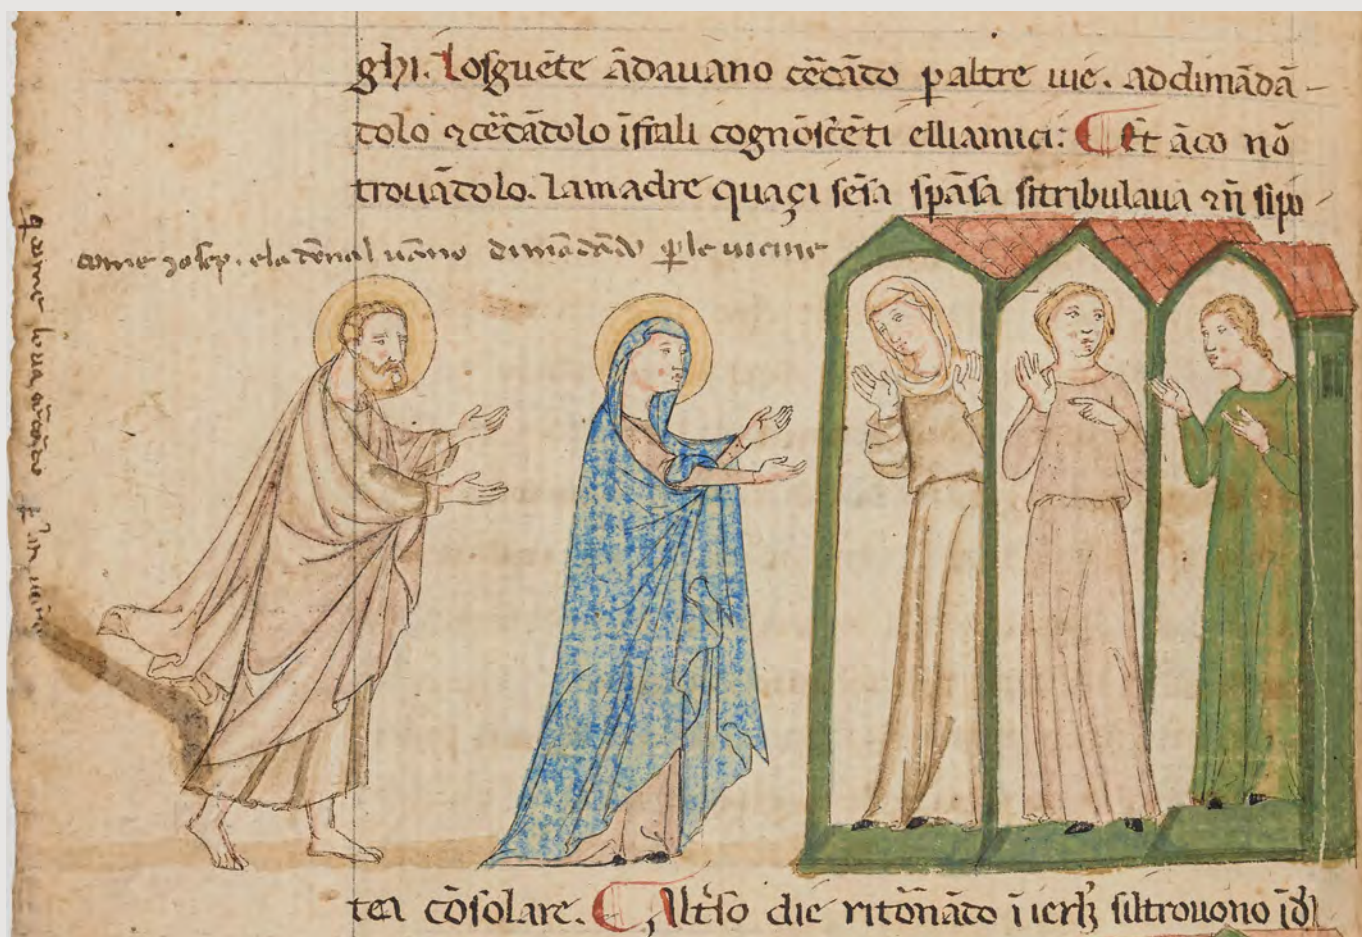 ghi. Losguēte ādauano cēcādo ꝑ altre uie. addimādā-
dolo ⁊ cēcādolo īfrali cognōscēti elliamici: ¶ Et āco nō
trouādolo. lamadre quaçi sēsa spāsa sitribulaua ⁊ n̄ sipo
come Josep. ela dōna l uāno dimādādo ꝑ le uicine
come
tea cōsolare. ¶ Alt̄so die ritōnādo ī ierłȝ siltrouono ī